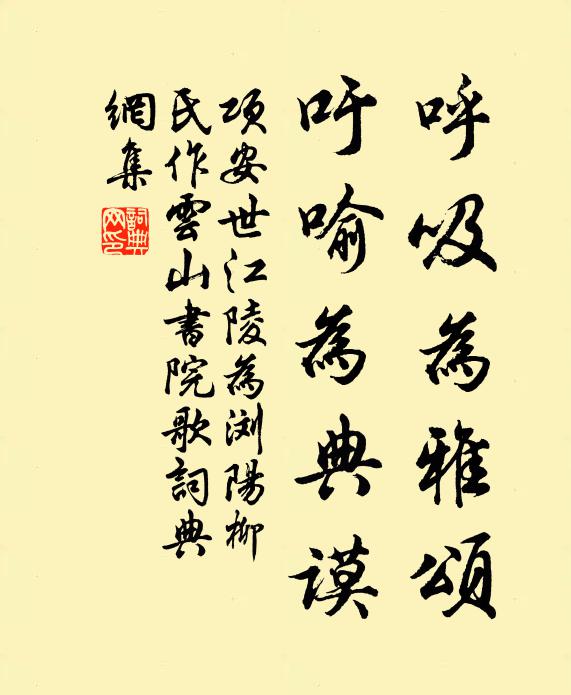 呼吸為雅頌
吁喻為典謨
項安世江陵為浏陽柳
氏作雲山書院歌詞典
網集
詞典网印